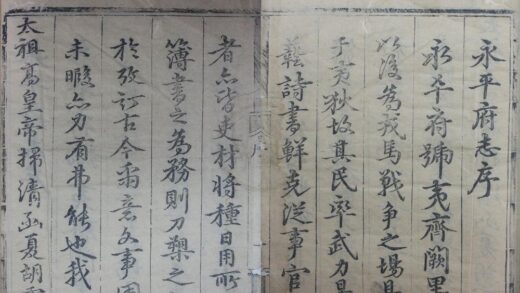 永平府志序
永平府號夷齊闕里
以後為戎馬戰爭之場
于夷狄故其民率武力
藝詩書鮮克從事官
者亦皆吏材將種日用所
簿書之為務則刀槊之
於攷訂古今留意文事
未暇亦力有弗能也我
太祖高皇帝掃清函夏胡